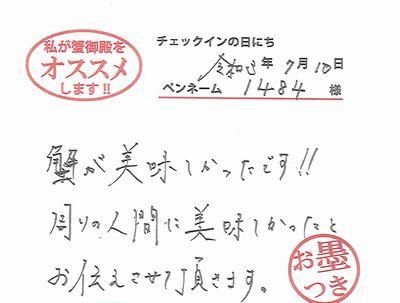 私が蟹御殿を
オススメ
します!!
チェックインの日にち
令和3年7月10日
ペンネーム 1484 様
蟹が美味しかったです!!
周りの人間に美味しかったと
お伝えさせて頂きます。
お墨
つき